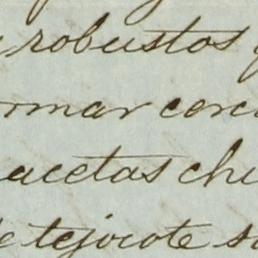 robustos
rmar cerc
acetas chi
de tejocote s